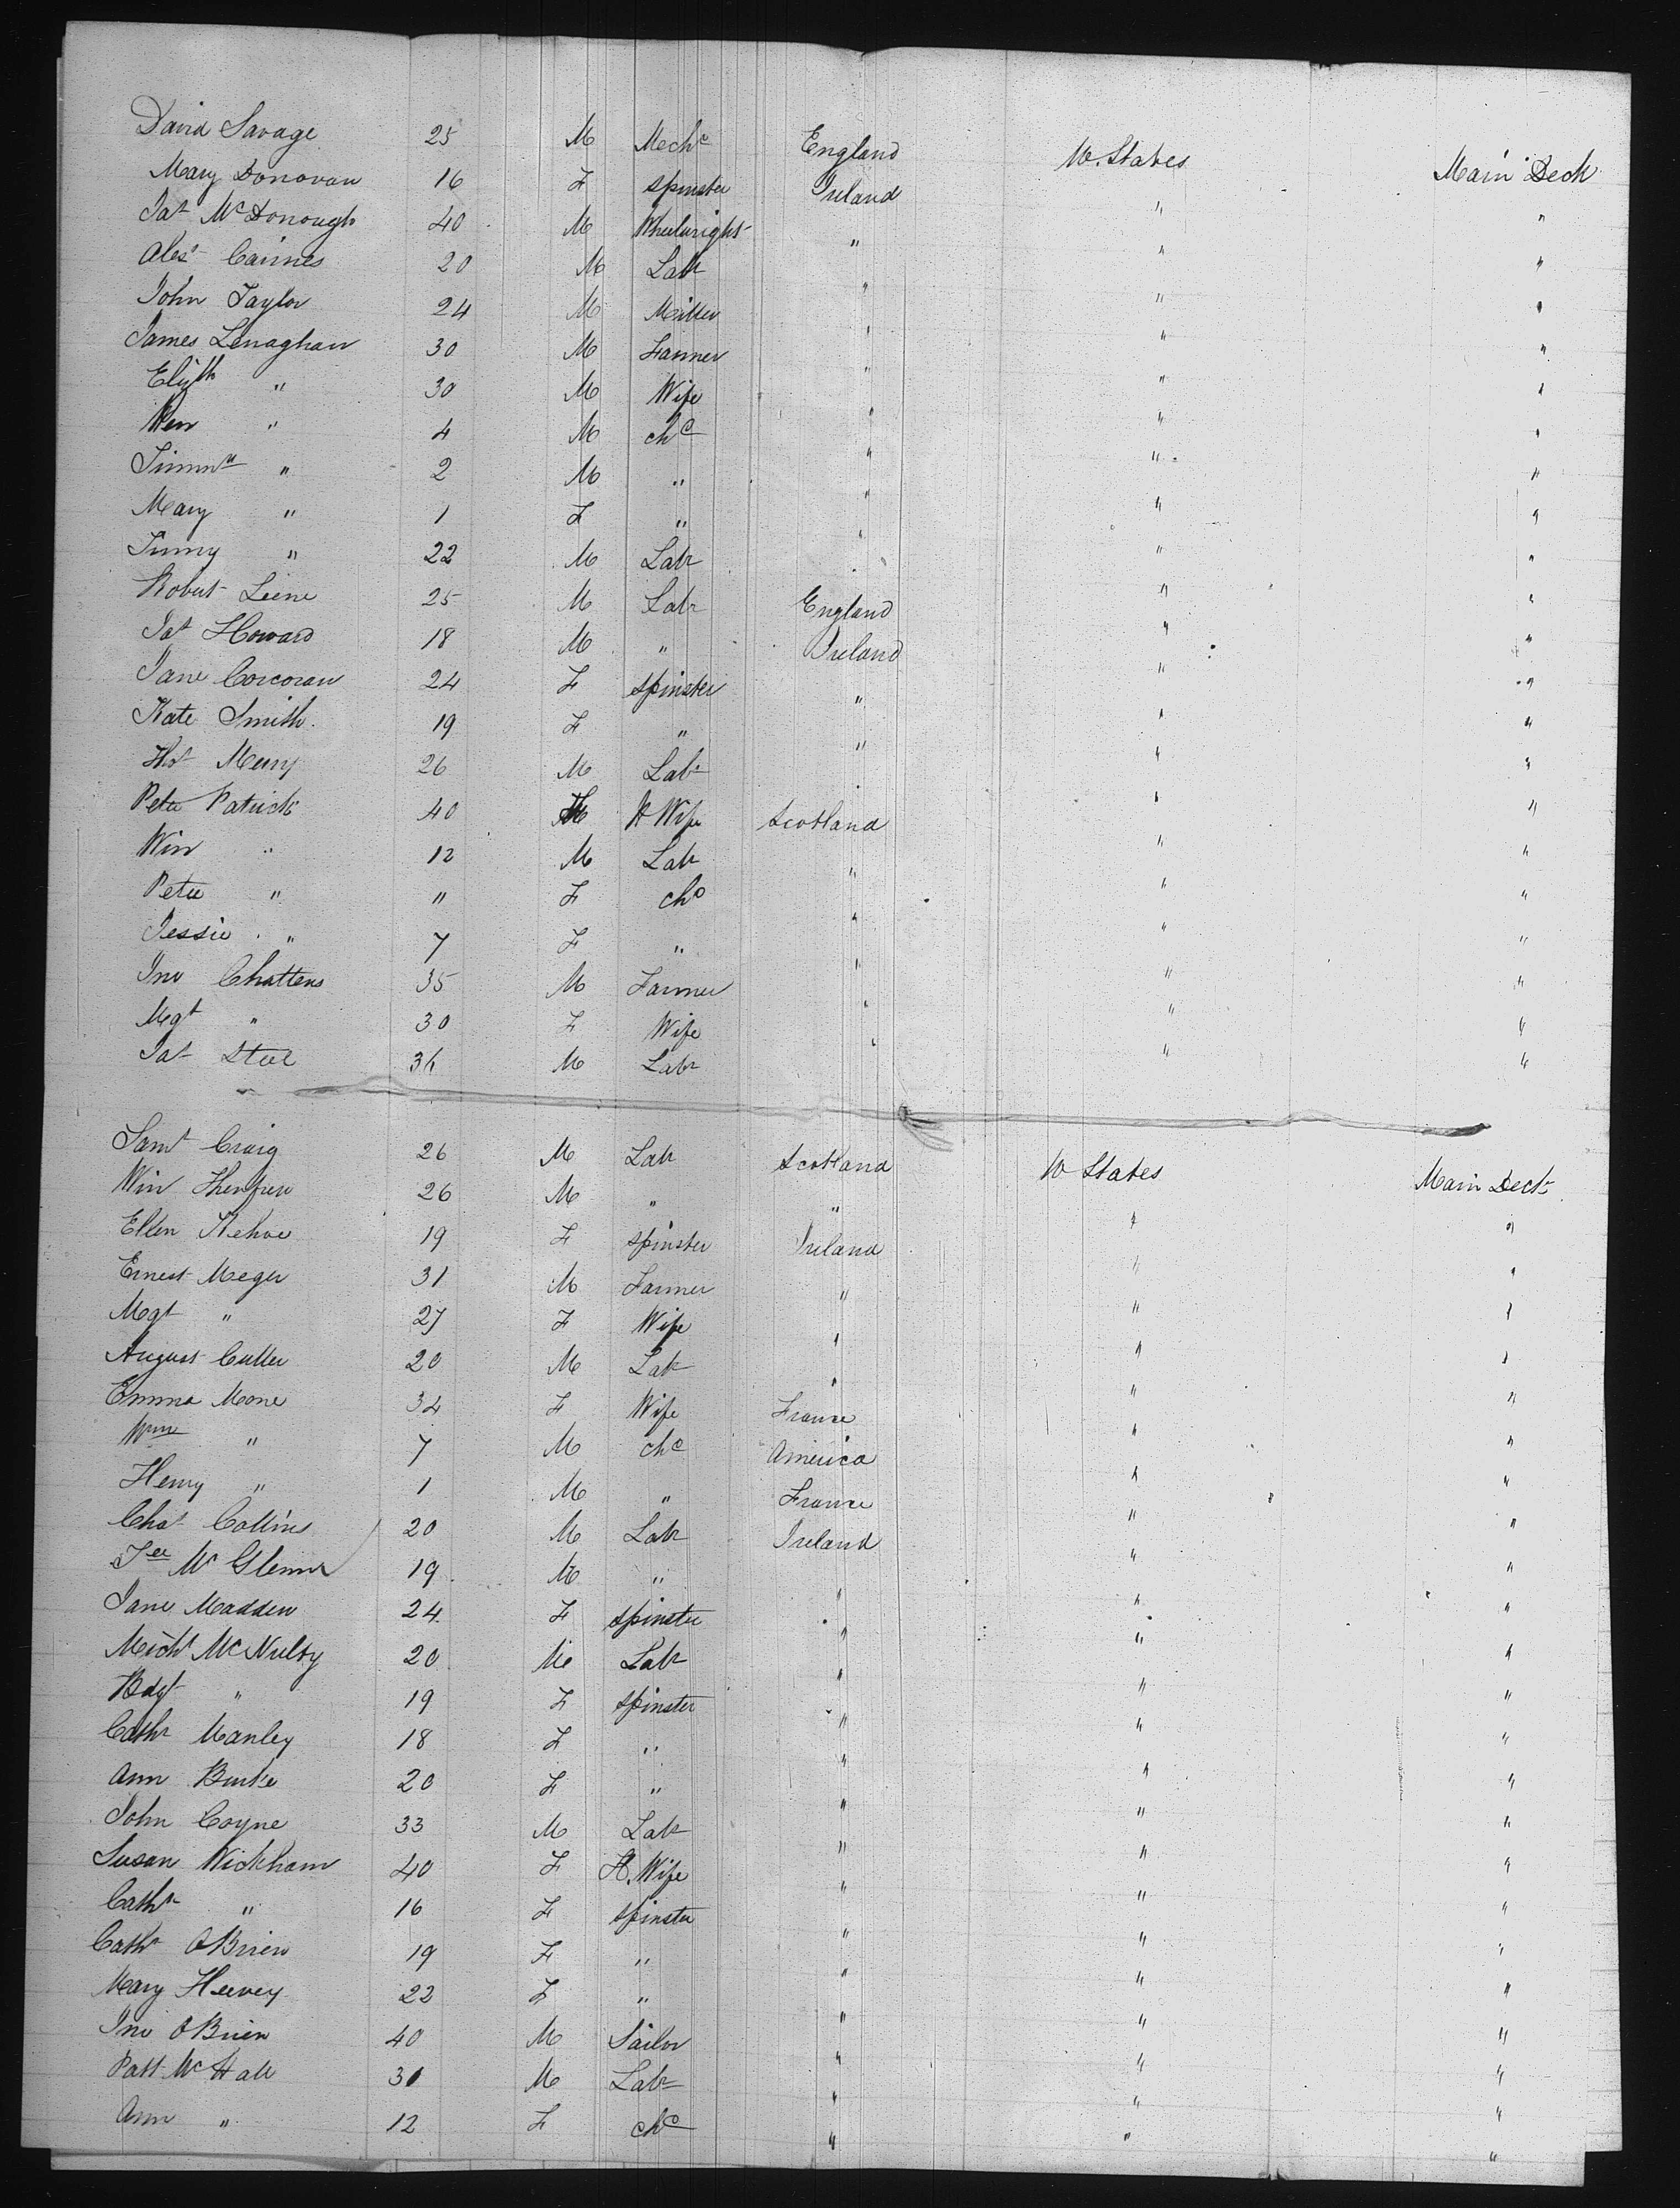 David Savage 25 M Mechc England U. States Main Deck
Mary Donovan 16 F Spinster Ireland " "
Jas McDonough 40 M Wheelwright " " "
Alexr Cairnes 20 M Labr " " "
John Taylor 24 M Miller " " "
James Lenaghan 30 M Farmer " " "
Elizth " 30 M Wife " " "
Wm " 4 M chd " " "
" 2 M " " " "
Mary " 1 F " " " "
Jimmy " 22 M Labr " " "
Robert 25 M Labr England " "
Jas Howard 18 M " Ireland " "
Jane Corcoran 24 F Spinster " " "
Kate Smith 19 F " " " "
26 M Labr " " "
Peter Patrick 40 H Wife Scotland " "
Win " 12 M Labr " " "
Peter " " F chd " " "
Jessie " 7 F " " " "
Jno Chattens 35 M Farmer " " "
Mgt " 30 F Wife " " "
Jas Steel 36 M Labr " " "
Saml Craig 26 M Labr Scotland U States Main Deck
Win 26 M " " " "
Ellen Kehoe 19 F Spinster Ireland " "
Ernest Meger 31 M Farmer " " "
Mgt " 27 F Wife " " "
August Culler 20 M Labr " " "
Emma Mone 34 F Wife France " "
Wm " 7 M chd America " "
Henry " 1 M " France " "
Chas Collins 20 M Labr Ireland " "
McGlenn 19 M " " " "
Jane Madden 24 F Spinster " " "
Michl McNulty 20 M Labr " " "
Bdgt " 19 F Spinster " " "
Cathr Manley 18 F " " " "
Ann Burke 20 F " " " "
John Coyne 33 M Labr " " "
Susan Wickham 40 F H. Wife " " "
Cathr " 16 F Spinster " " "
Cathr OBrien 19 F " " " "
Mary Heevey 22 F " " " "
Jno OBrien 40 M Sailor " " "
Patt McHale 30 M Labr " " "
Ann " 12 F chd " " "